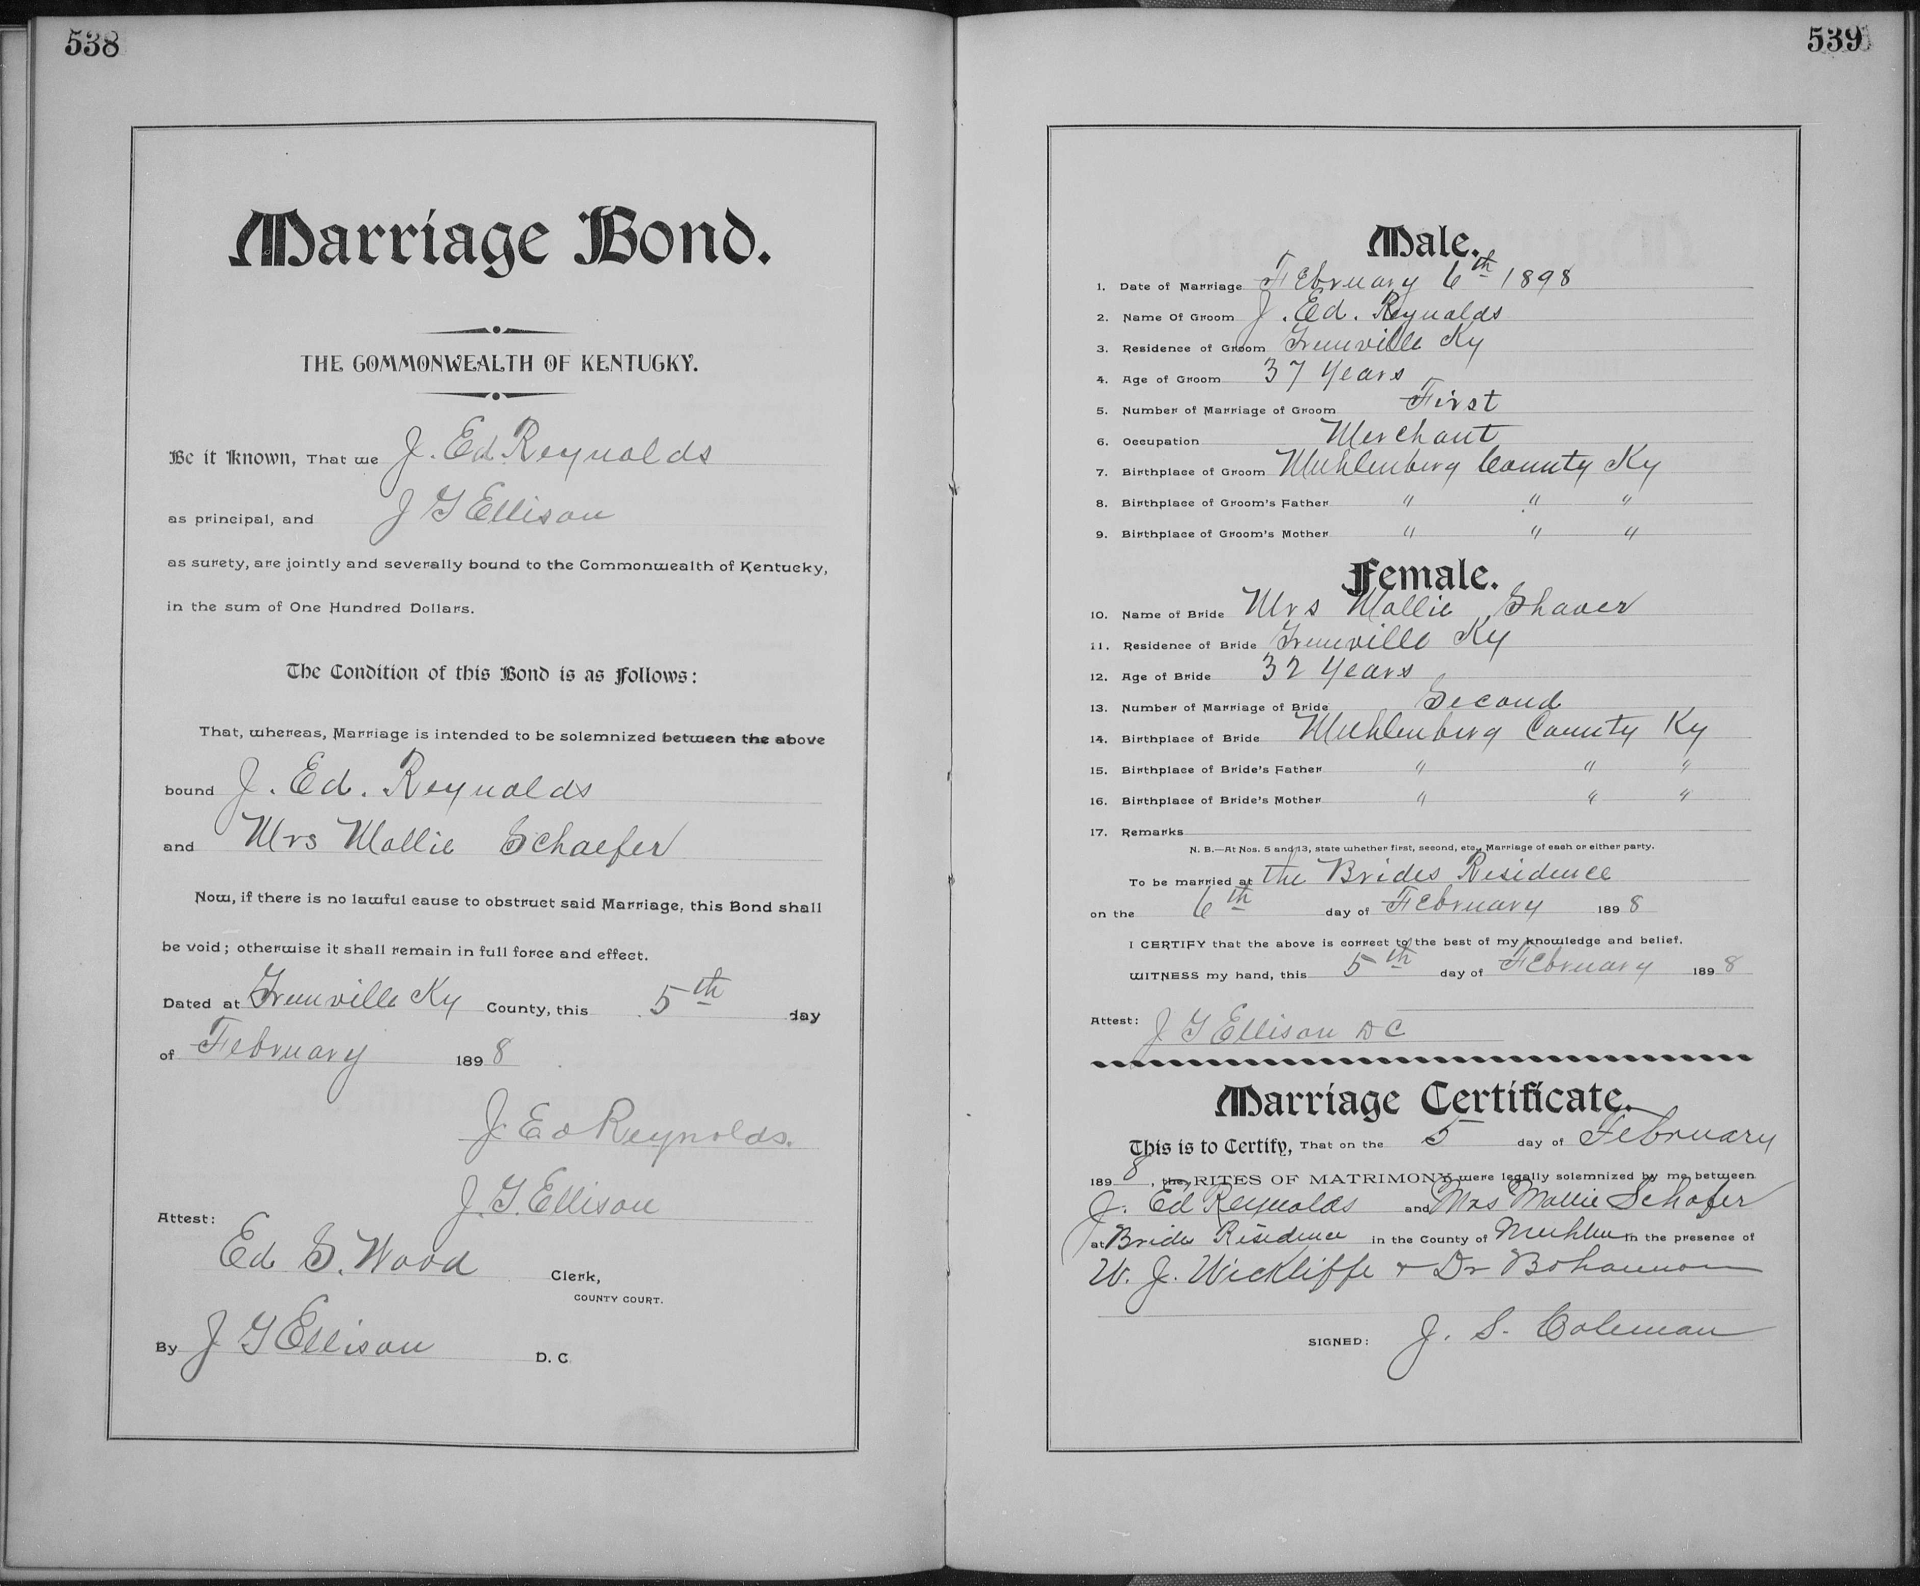 538
Marriage Bond.
THE COMMONWEALTH OF KENTUCKY.
Be it Known, That we J. Ed Reynolds
as principal, and J G Ellison
as surety, are jointly and severally bound to the Commonwealth of Kentucky,
in the sum of One Hundred Dollars.
The Condition of this Bond is as Follows:
That, whereas, Marriage is intended to be solemnized between the above
bound J. Ed. Reynolds
and Mrs Mollie Schaefer
Now, if there is no lawful cause to obstruct said Marriage, this Bond shall
be void; otherwise it shall remain in full force and effect.
Dated at Greenville Ky County, this 5th day
of February 1898
J. Ed Reynolds.
J. G. Ellison
Attest:
Ed S. Wood Clerk,
COUNTY COURT.
By J G Ellison D. C.
539
Male.
1. Date of Marriage February 6th 1898
2. Name Of Groom J. Ed. Reynolds
3. Residence of Groom Greenville Ky
4. Age of Groom 37 Years
5. Number of Marriage of Groom First
6. Occupation Merchant
7. Birthplace of Groom Muhlenberg County Ky
8. Birthplace of Groom's Father " " "
9. Birthplace of Groom's Mother " " "
Female.
10. Name of Bride Mrs Mollie Shaver
11. Residence of Bride Greenville Ky
12. Age of Bride 32 Years
13. Number of Marriage of Bride Second
14. Birthplace of Bride Muhlenberg County Ky
15. Birthplace of Bride's Father " " "
16. Birthplace of Bride's Mother " " "
17. Remarks
N. B.—At Nos. 5 and 13, state whether first, second, etc., Marriage of each or either party.
To be married at the Brides Residence
on the 6th day of February 1898
I CERTIFY that the above is correct to the best of my knowledge and belief.
WITNESS my hand, this 5th day of February 1898
Attest: J G Ellison D C
Marriage Certificate.
This is to Certify, That on the 5 day of February
1898, the RITES OF MATRIMONY were legally solemnized by me between
J. Ed Reynolds and Mrs Mollie Schafer
at Brides Residence in the County of Muhlen in the presence of
W. J. Wickliffe + Dr Bohannon
SIGNED: J. S. Coleman